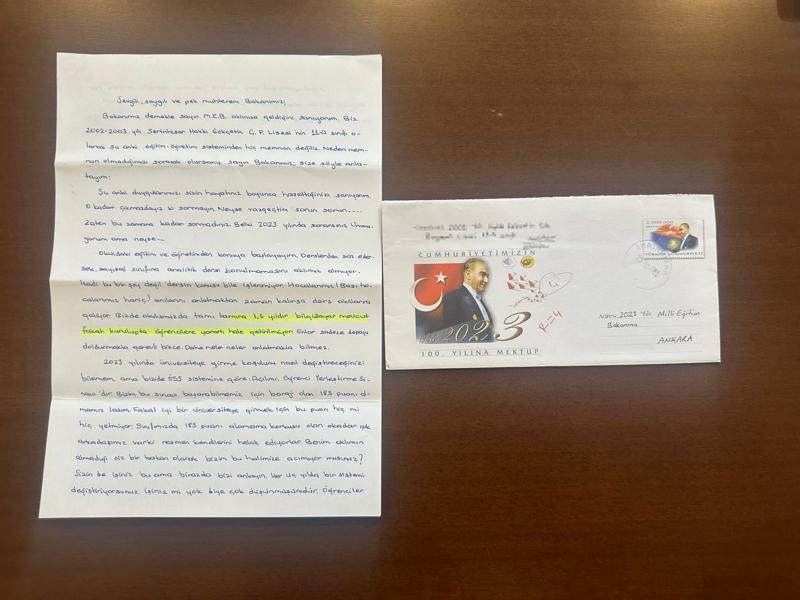 Sevgili, saygılı ve pek muhterem Bakanımız;
Bakanımız demekle sayın M.E.B. aklınıza geldiğini sanıyorum. Biz
2002-2003 yılı Serinhisar Hakkı Gökçetin Ç. P. Lisesi'nin 11-A sınıfı o-
larak şu anki eğitim-öğretim sisteminden hiç memnun değiliz. Neden mem-
nun olmadığımızı soracak olursanız sayın Bakanımız; size şöyle anla-
tayım:
Şu anki duygularımızı sizin hayatınız boyunca hissettiğinizi sanıyorum.
O kadar çıkmazdayız ki sormayın. Neyse vazgeçtim sorun sorun....
Zaten bu zamana kadar sormadınız. Belki 2023 yılında sorarsınız. Ummu-
yorum ama neyse...
Okuldaki eğitim ve öğretimden konuya başlayayım. Derslerden söz eder-
sek, sayısal sınıfına analitik dersi konulmamasını aklımız almıyor.
Hadi bu bir şey değil dersin konusu bile işlenmiyor. Hocalarımız! (Bazı ho-
calarımız hariç) anılarını anlatmaktan zaman kalırsa ders akıllarına
geliyor. Bizde okulumuzda tamı tamına 1,5 yıldır bilgisayar mevcut
fakat kurulupta öğrencilere yararlı hale getirilmiyor. Onlar sadece depoyu
doldurmakla görevli bizce. Daha neler neler anlatmakla bitmez.
2023 yılında üniversiteye girme koşulunu nasıl değiştireceğinizi
bilemem, ama bizide ÖSS sistemine göre: Açılımı, Öğrenci Yerleştirme Sı-
navı'dır. Bizim bu sınavı başarabilmemiz için barajı olan 185 puanı al-
mamız lazım. Fakat iyi bir üniversiteye girmek için bu puan hiç mi
hiç yetmiyor. Sınıfımızda 185 puanı alamama korkusu olan okadar çok
arkadaşımız varki resmen kendilerini helak ediyorlar. Benim aklımın
almadığı siz bir bakan olarak bizim bu halimize acımıyor musunuz?
Sizin de işiniz bu ama birazda bizi anlayın. Her üç yılda bir sistemi
değiştiriyorsunuz işiniz mi yok diye çok düşünmüşümdür. Öğrenciler
CUMHURİYETİMİZİN
2023
100. YILINA MEKTUP
R=4
TÜRKİYE CUMHURİYETİ
2023 Yılı Milli Eğitim
Bakanına
ANKARA